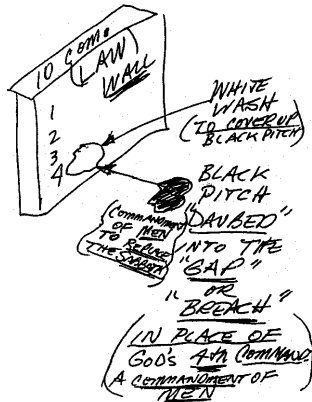 10 COM.
(LAW)
WALL
1
2
3
4
WHITE
WASH
(TO COVER UP
BLACK PITCH)
BLACK
PITCH
"DAUBED"
INTO THE
"GAP"
OR
"BREACH"
(COMMANDMENT
OF MEN
TO REPLACE
THE SABBATH)
(IN PLACE OF
GOD'S 4th COMMAND
A COMMANDMENT OF
MEN)